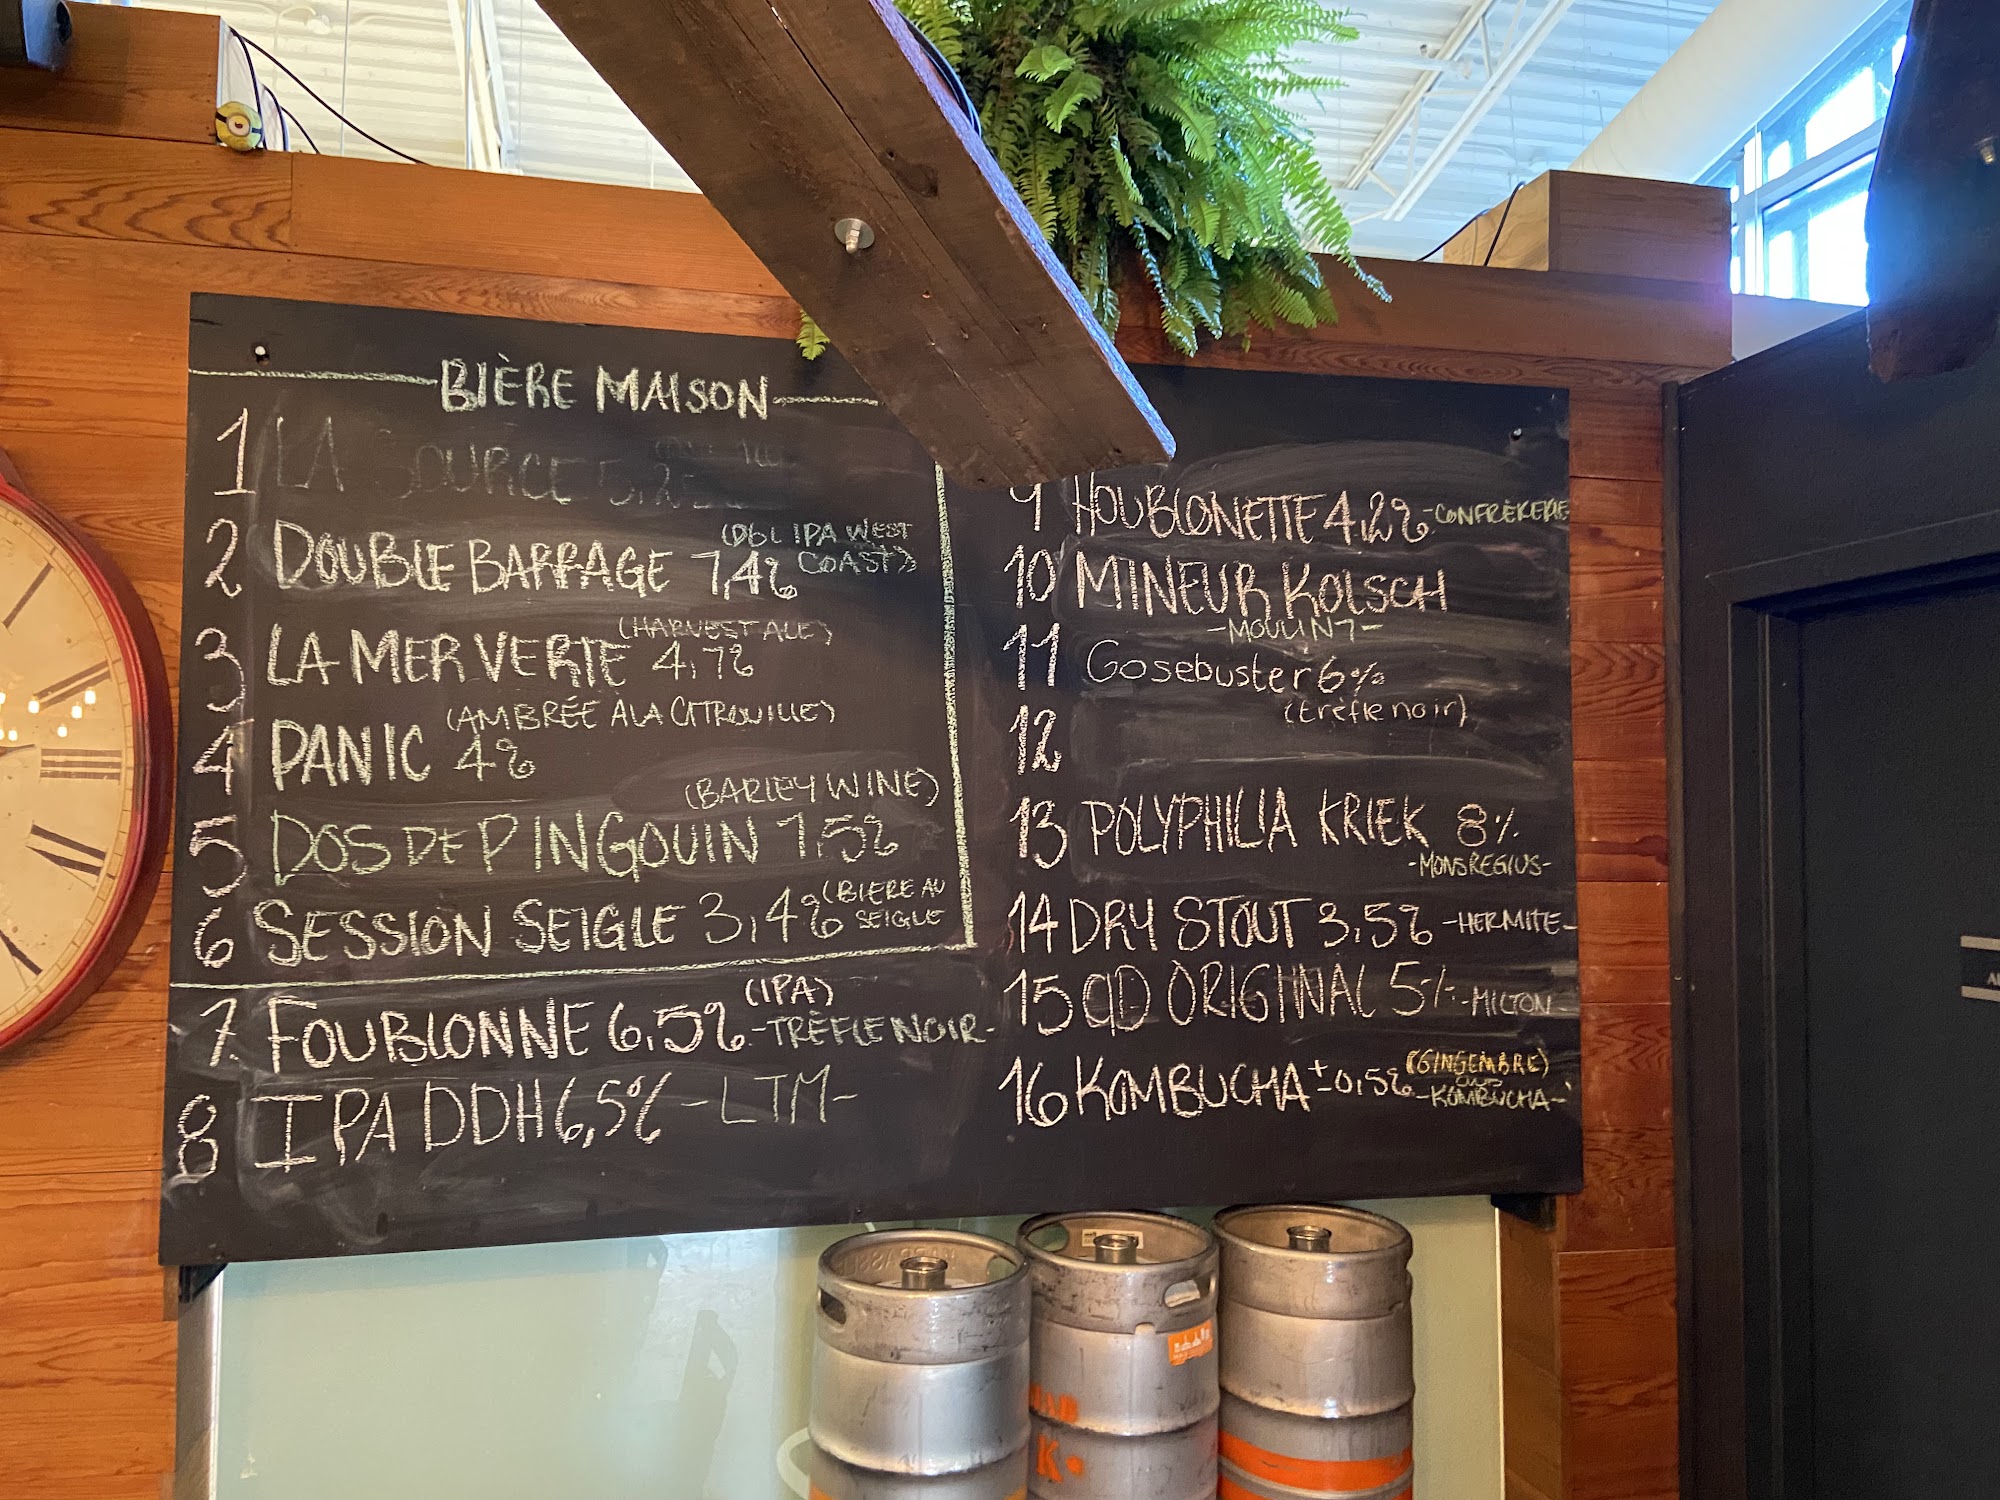 BIÈRE MAISON
1 LA SOURCE 5,2%
2 DOUBLE BARRAGE 7,4% (DBL IPA WEST
COAST)
3 LA MER VERTE 4,7% (HARVEST ALE)
4 PANIC 4% (AMBRÉE À LA CITROUILLE)
(BARLEY WINE)
5 DOS DE PINGOUIN 7,5%
6 SESSION SEIGLE 3,4% (BIERE AU
SEIGLE
7 FOUBLONNE 6,5% (IPA)
-TRÈFLE NOIR-
8 IPA DDH 6,5% -LTM-
9 HOUBLONETTE 4,2% -CONFRÈRERIE
10 MINEUR KOLSCH
-MOULIN 7-
11 Gosebuster 6%
(trèfle noir)
12
13 POLYPHILIA KRIEK 8%
-MONSREGIUS-
14 DRY STOUT 3,5% -HERMITE-
15 CID ORIGINAL 5% -MILTON-
16 KOMBUCHA ±0,5% (GINGEMBRE)
-KOMBUCHA-
K